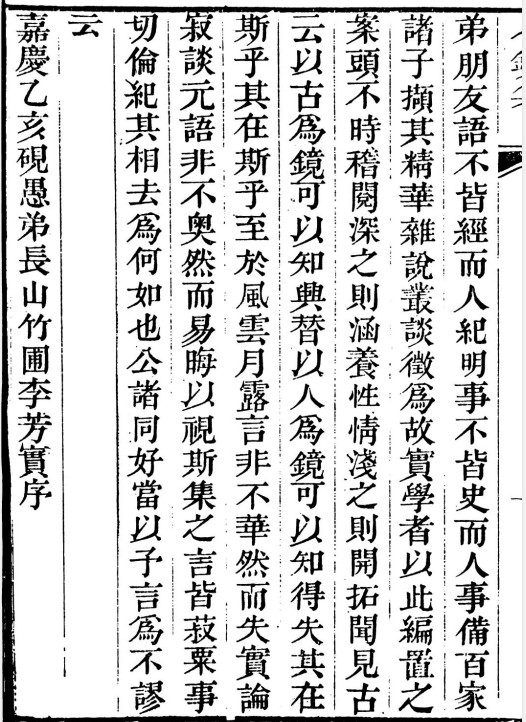 弟朋友語不皆經而人紀明事不皆史而人事備百家
諸子擷其精華雜說叢談徵爲故實學者以此編置之
案頭不時稽閱深之則涵養性情淺之則開拓聞見古
云以古爲鏡可以知興替以人爲鏡可以知得失其在
斯乎其在斯乎至於風雲月露言非不華然而失實論
寂談元語非不奥然而易晦以視斯集之言皆菽粟事
切倫紀其相去爲何如也公諸同好當以予言爲不謬
云
嘉慶乙亥硯愚弟長山竹圃李芳實序